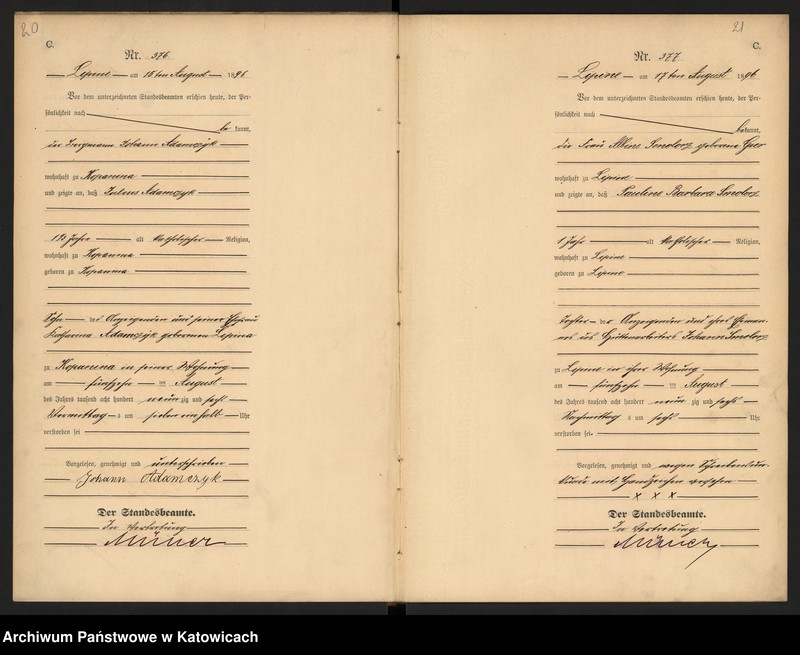 20
C.
Nr. 376
Lipine am 15ten August 1896
Vor dem unterzeichneten Standesbeamten erschien heute, der Per-
sönlichkeit nach
be kannt,
der Bergmann Johann Adamczyk
wohnhaft zu Kopanina
und zeigte an, daß Julius Adamczyk
Jahre alt katholischer Religion,
wohnhaft zu Kopanina
geboren zu Kopanina
Sohn des Anzeigenden und seiner Ehefrau
Katharina Adamczyk geborenen Lepina
zu Kopanina in seiner Wohnung
am fünfzehn ten August
des Jahres tausend acht hundert neun zig und sechs
Vormittag s um ein halb Uhr
verstorben sei
Vorgelesen, genehmigt und unterschrieben
Johann Adamczyk
Der Standesbeamte.
In Vertretung
21
C.
Nr. 377
Lipine am 17ten August 1896
Vor dem unterzeichneten Standesbeamten erschien heute, der Per-
sönlichkeit nach
be kannt,
die Frau Smolorz geborene
wohnhaft zu Lipine
und zeigte an, daß Pauline Barbara Smolorz
1 Jahr alt katholischer Religion,
wohnhaft zu Lipine
geboren zu Lipine
Tochter der Anzeigenden und ihres Eheman-
nes des Hüttenarbeiters Johann Smolorz
zu Lipine in ihrer Wohnung
am fünfzehn ten August
des Jahres tausend acht hundert neun zig und sechs
Nachmittag s um sechs Uhr
verstorben sei.
Vorgelesen, genehmigt und wegen Schreibensun-
kunde mit Handzeichen versehen
x x x
Der Standesbeamte.
In Vertretung
Archiwum Państwowe w Katowicach